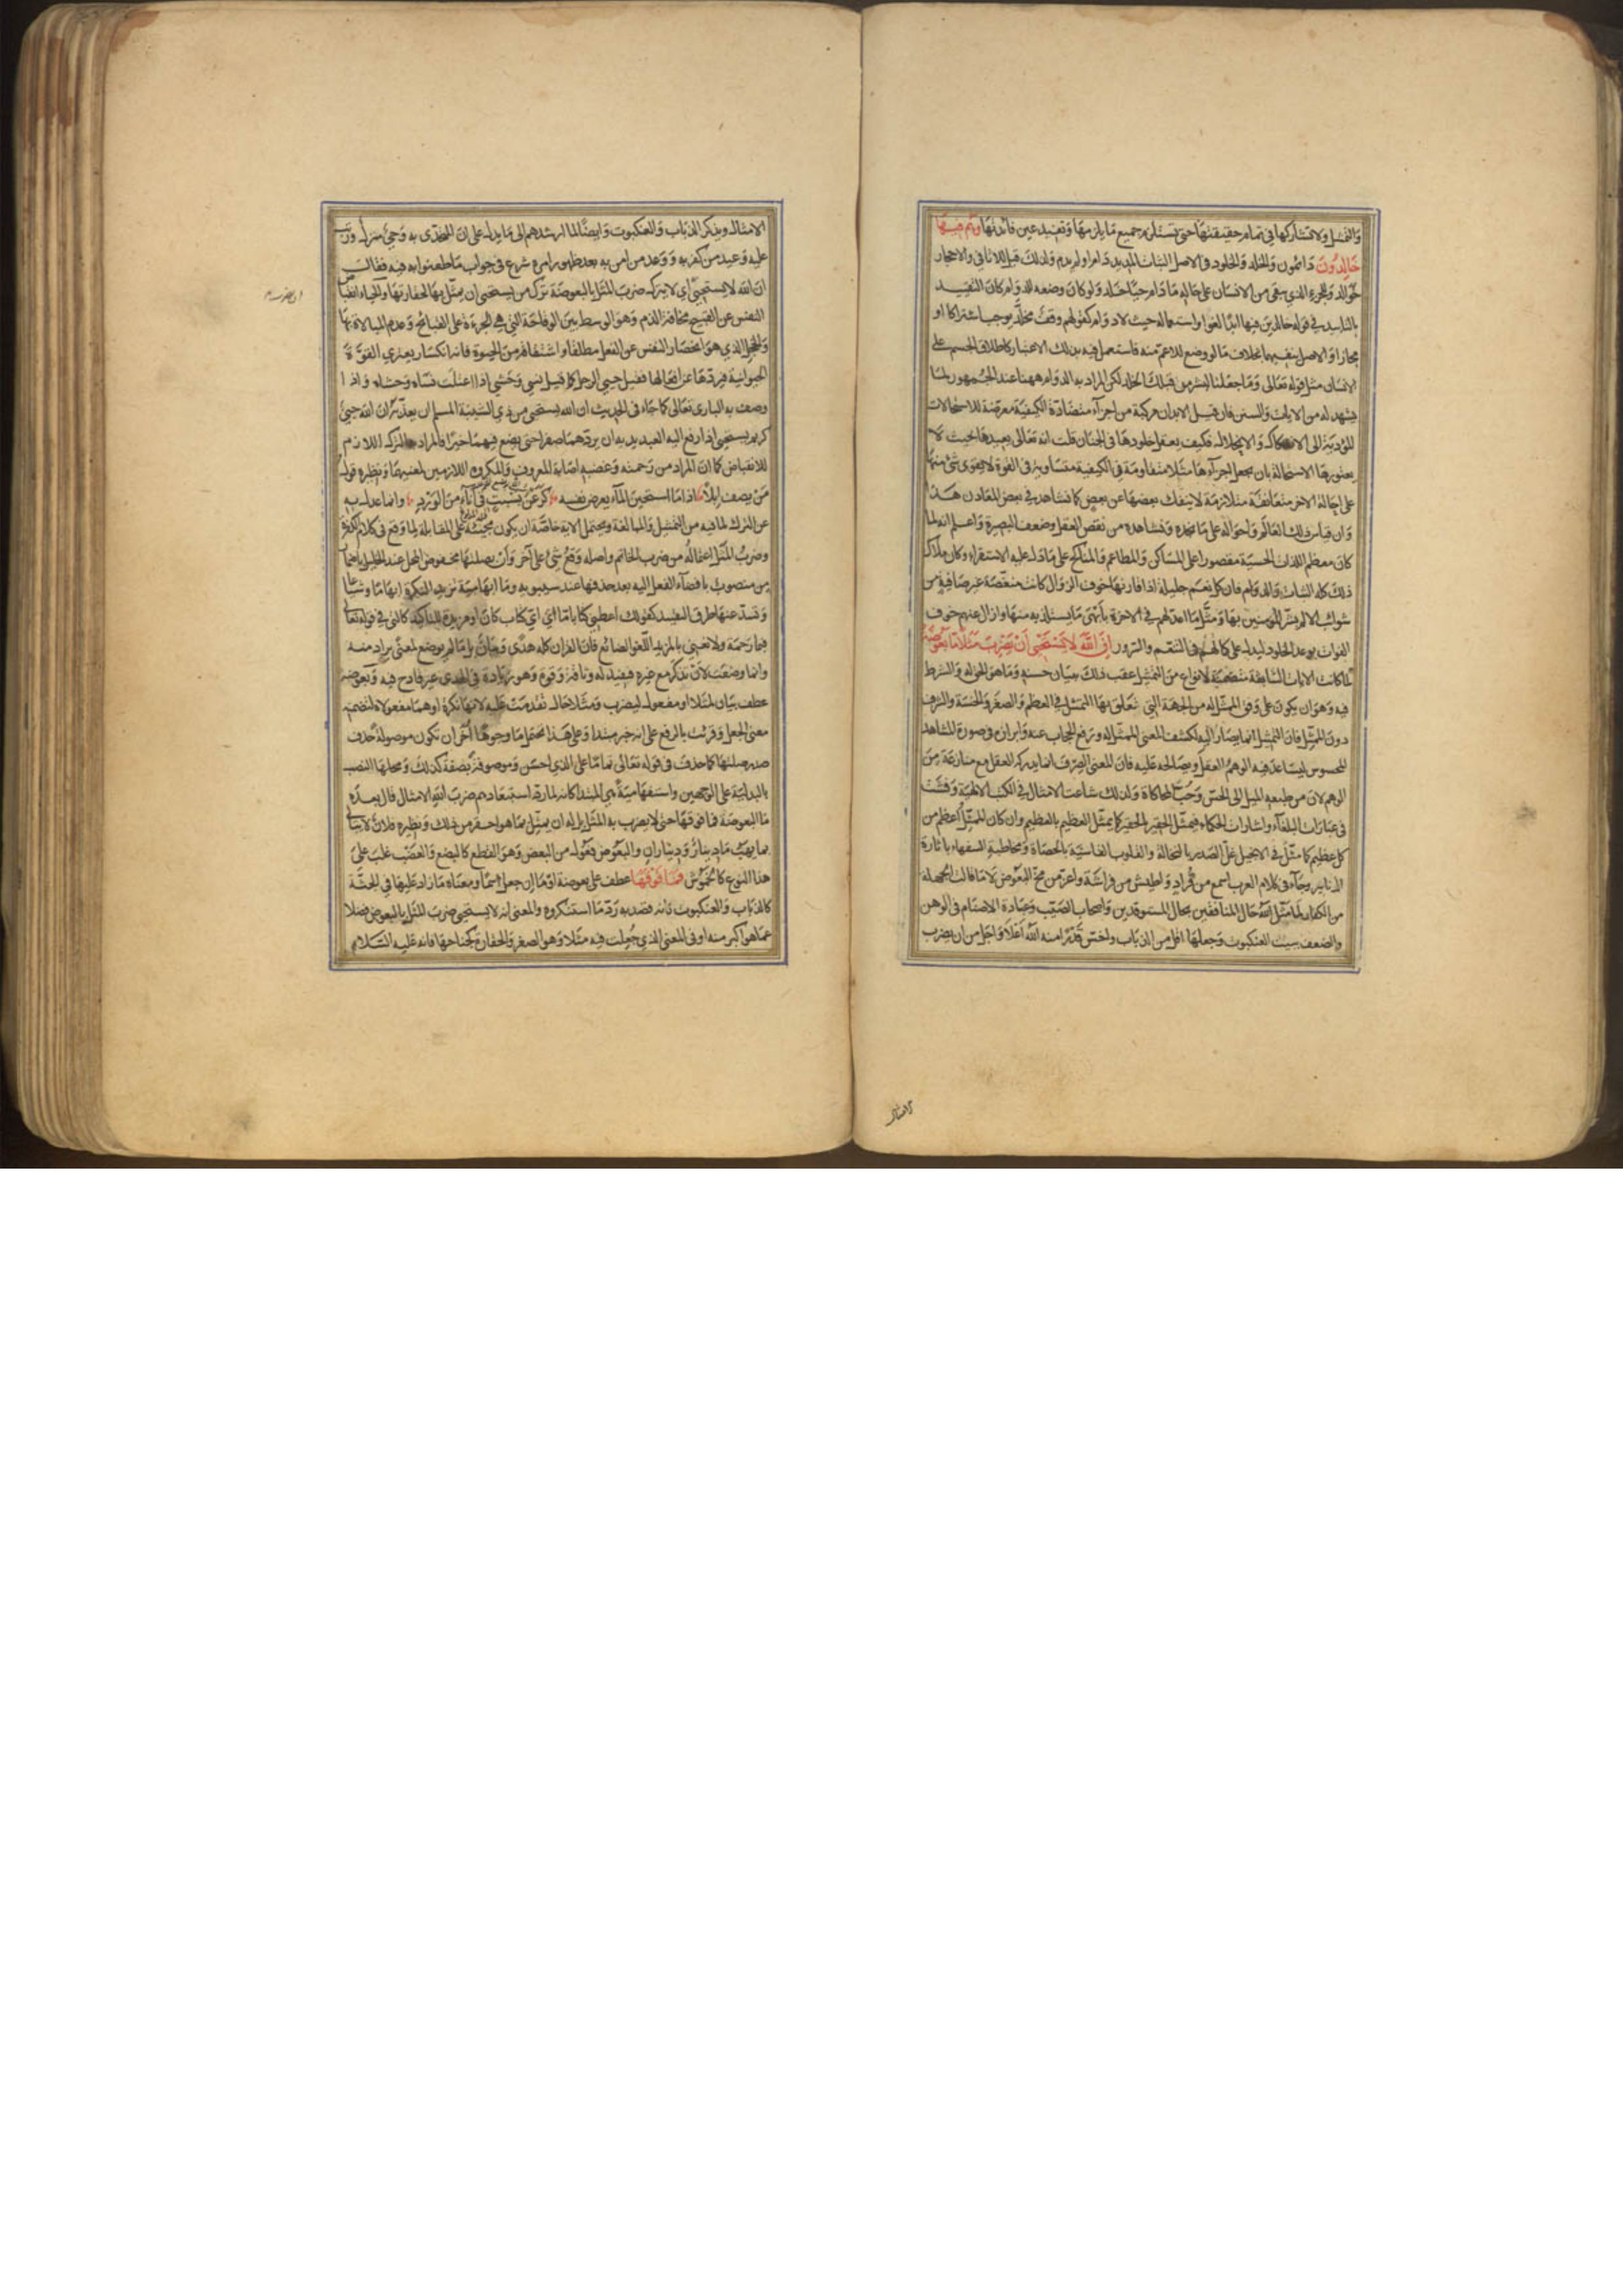 والتمثيل ولا تشاركها في تمام حقيقتها حتى تستلزم جميع ما يلزمها وتفيد عين فائدتها وهم فيها
خالدون دائمون والخلد والخلود في الاصل الثبات المديد دام او لم يدم ولذلك قيل للاثافي والاحجار
خوالد وللجزء الذي يبقى من الانسان على حاله ما دام حيا خلد ولو كان وضعه للدوام كان التقييد
بالتابيد في قوله خالدين فيها ابدا لغوا واستعماله حيث لا دوام كقولهم وقف مخلد يوجب اشتراكا او
مجازا والاصل ينفيهما بخلاف ما لو وضع للاعم منه فاستعمل فيه بذلك الاعتبار كاطلاق الجسم على
الانسان مثل قوله تعالى وما جعلنا لبشر من قبلك الخلد لكن المراد به الدوام ههنا عند الجمهور لما
يشهد له من الايات والسنن فان قيل الابدان مركبة من اجزاء متضادة الكيفية معرضة للاستحالات
المؤدية الى الانفكاك والانحلال فكيف يعقل خلودها في الجنان قلت انه تعالى يعيدها بحيث لا
يعتورها الاستحالة بان يجعل اجزاءها مثلا متقاومة في الكيفية متساوية في القوة لا يقوى شئ منها
على احالة الاخر متعانقة متلازمة لا ينفك بعضها عن بعض كما نشاهد في بعض المعادن هذا
وان قياس ذلك العالم واحواله على ما نجده ونشاهده من نقص العقل وضعف البصيرة واعلم انه لما
كان معظم اللذات الحسية مقصورا على المساكن والمطاعم والمناكح على ما دل عليه الاستقراء وكان ملاك
ذلك كله الثبات والدوام فان كل نعيم جليلة اذا قارنها خوف الزوال كانت منغصة غير صافية من
شوائب الالم بشر المؤمنين بها ومثل ما اعد لهم في الاخرة بابهى ما يستلذ به منها وازال عنهم خوف
الفوات بوعد الخلود ليدل على كمالهم في التنعم والسرور ان الله لا يستحيى أن يضرب مثلا ما بعوضة
لما كانت الايات السابقة متضمنة لانواع من التمثيل عقب ذلك ببيان حسنه وما هو الحق له والشرط
فيه وهو ان يكون على وفق الممثل له من الجهة التي تعلق بها التمثيل في العظم والصغر والخسة والشرف
دون الممثل فان التمثيل انما يصار اليه لكشف المعنى الممثل له ورفع الحجاب عنه وابرازه في صورة المشاهد
المحسوس ليساعد فيه الوهم العقل ويصالحه عليه فان المعنى الصرف انما يدركه العقل مع منازعة من
الوهم لان من طبعه الميل الى الحس وحب المحاكاة ولذلك شاعت الامثال في الكتب الالهية وفشت
في عبارات البلغاء واشارات الحكماء فيمثل الحقير بالحقير كما يمثل العظيم بالعظيم وان كان الممثل أعظم من
كل عظيم كما مثل في الانجيل غل الصدر بالنخالة والقلوب القاسية بالحصاة ومخاطبة السفهاء باثارة
الزنابير وجاء في كلام العرب اسمع من قراد واطيش من فراشة واعز من مخ البعوض لا ما قالت الجهلة
من الكفار لما مثل الله حال المنافقين بحال المستوقدين واصحاب الصيب وعبادة الاصنام في الوهن
والضعف ببيت العنكبوت وجعلها اقل من الذباب واخس قدرا منه الله أعلا واجل من ان يضرب
الامثال
الامثال ويذكر الذباب والعنكبوت وايضا لما ارشدهم الى ما يدل على ان المتحدى به وحى منزل ورتب
عليه وعيد من كفر به ووعد من امن به بعد ظهور امره شرع في جواب ما طعنوا به فيه فقال
ان الله لا يستحيي اي لا يترك ضرب المثل بالبعوضة ترك من يستحيى ان يمثل بها لحقارتها والحياء انقباض
النفس عن القبيح مخافة الذم وهو الوسط بين الوقاحة التي هي الجرءة على القبائح وعدم المبالاة بها
والخجل الذي هو انحصار النفس عن الفعل مطلقا واشتقاقه من الحيوة فانه انكسار يعتري القوة
الحيوانية فيردها عن افعالها فقيل حيي الرجل كما قيل نسي وحشي اذا اعتلت نساه وحشاه واذا
وصف به الباري تعالى كما جاء في الحديث ان الله يستحيى من ذي الشيبة المسلم ان يعذبه ان الله حيي
كريم يستحيى اذا رفع اليه العبد يديه ان يردهما صفرا حتى يضع فيهما خيرا فالمراد به الترك اللازم
للانقباض كما ان المراد من رحمته وغضبه اصابة المعروف والمكروه اللازمين لمعنييهما ونظيره قول
من يصف ابلا اذا ما استحين الماء يعرض نفسه كرعن بسبت في اناء من الورد وانما عدل به
عن الترك لما فيه من التمثيل والمبالغة ويحتمل الاية خاصة ان يكون مجيئه على المقابلة لما وقع في كلام الكفرة
وضرب المثل اعتماله من ضرب الخاتم واصله وقع شئ على آخر وأن بصلتها مخفوض المحل عند الخليل باضمار
من منصوب بافضاء الفعل اليه بعد حذفها عند سيبويه وما ابهامية تزيد النكرة ابهاما وشياعا
وتسد عنها طرق التقييد كقولك اعطني كتابا ما اي اي كتاب كان او مزيدة للتاكيد كالتي في قوله تعالى
فبما رحمة ولا نعني بالمزيد اللغو الضائع فان القران كله هدى وبيان بل ما لم يوضع لمعنى يراد منه
وانما وضعت لان تذكر مع غيره فيفيد له وثاقة وقوة وهو زيادة في الهدى غير قادح فيه وبعوضة
عطف بيان لمثلا او مفعول ليضرب ومثلا حال تقدمت عليه لانها نكرة او هما مفعولاه لتضمنه
معنى الجعل وقرئت بالرفع على انه خبر مبتدا وعلى هذا تحتمل ما وجوها أخر ان تكون موصولة حذف
صدر صلتها كما حذف في قوله تعالى تماما على الذي احسن وموصوفة بصفة كذلك ومحلها النصب
بالبدلية على الوجهين واستفهامية هي المبتدا كانه لما رد استبعادهم ضرب الله الامثال قال بعده
ما البعوضة فما فوقها حتى لا يضرب به المثل بل له ان يمثل بما هو احقر من ذلك ونظيره فلان لا يبالي
بما يهب ما دينار وديناران والبعوض فعول من البعض وهو القطع كالبضع والعضب غلب على
هذا النوع كالخموش فما فوقها عطف على بعوضة او ما ان جعل اسما ومعناه ما زاد عليها في الجثة
كالذباب والعنكبوت كانه قصد به رد ما استنكروه والمعنى انه لا يستحيى ضرب المثل بالبعوض فضلا
عما هو اكبر منه او في المعنى الذي جعلت فيه مثلا وهو الصغر والحقارة كجناحها فانه عليه السلام